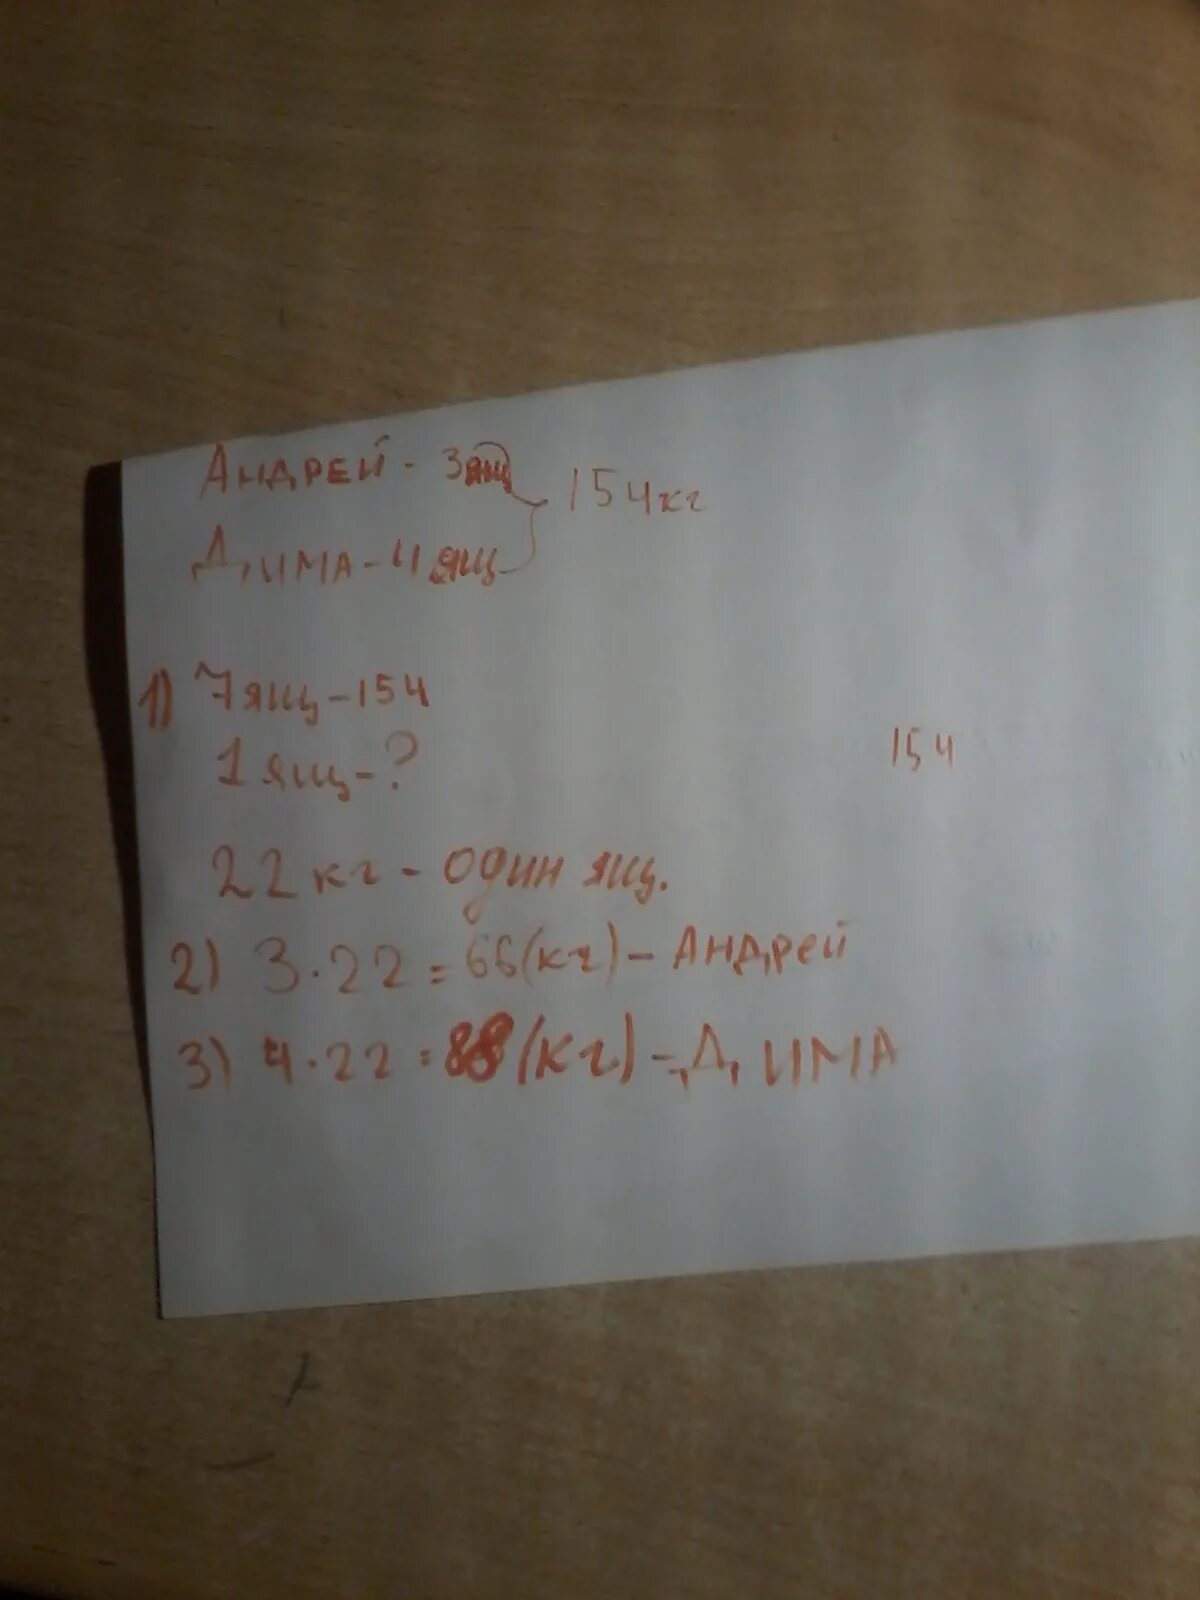 Андрей - 3 ящ
154кг
Дима - 4 ящ
1) 7 ящ - 154
1 ящ - ?
154
22 кг - один ящ.
2) 3 · 22 = 66 (кг) - Андрей
3) 4 · 22 = 88 (кг.) - Дима